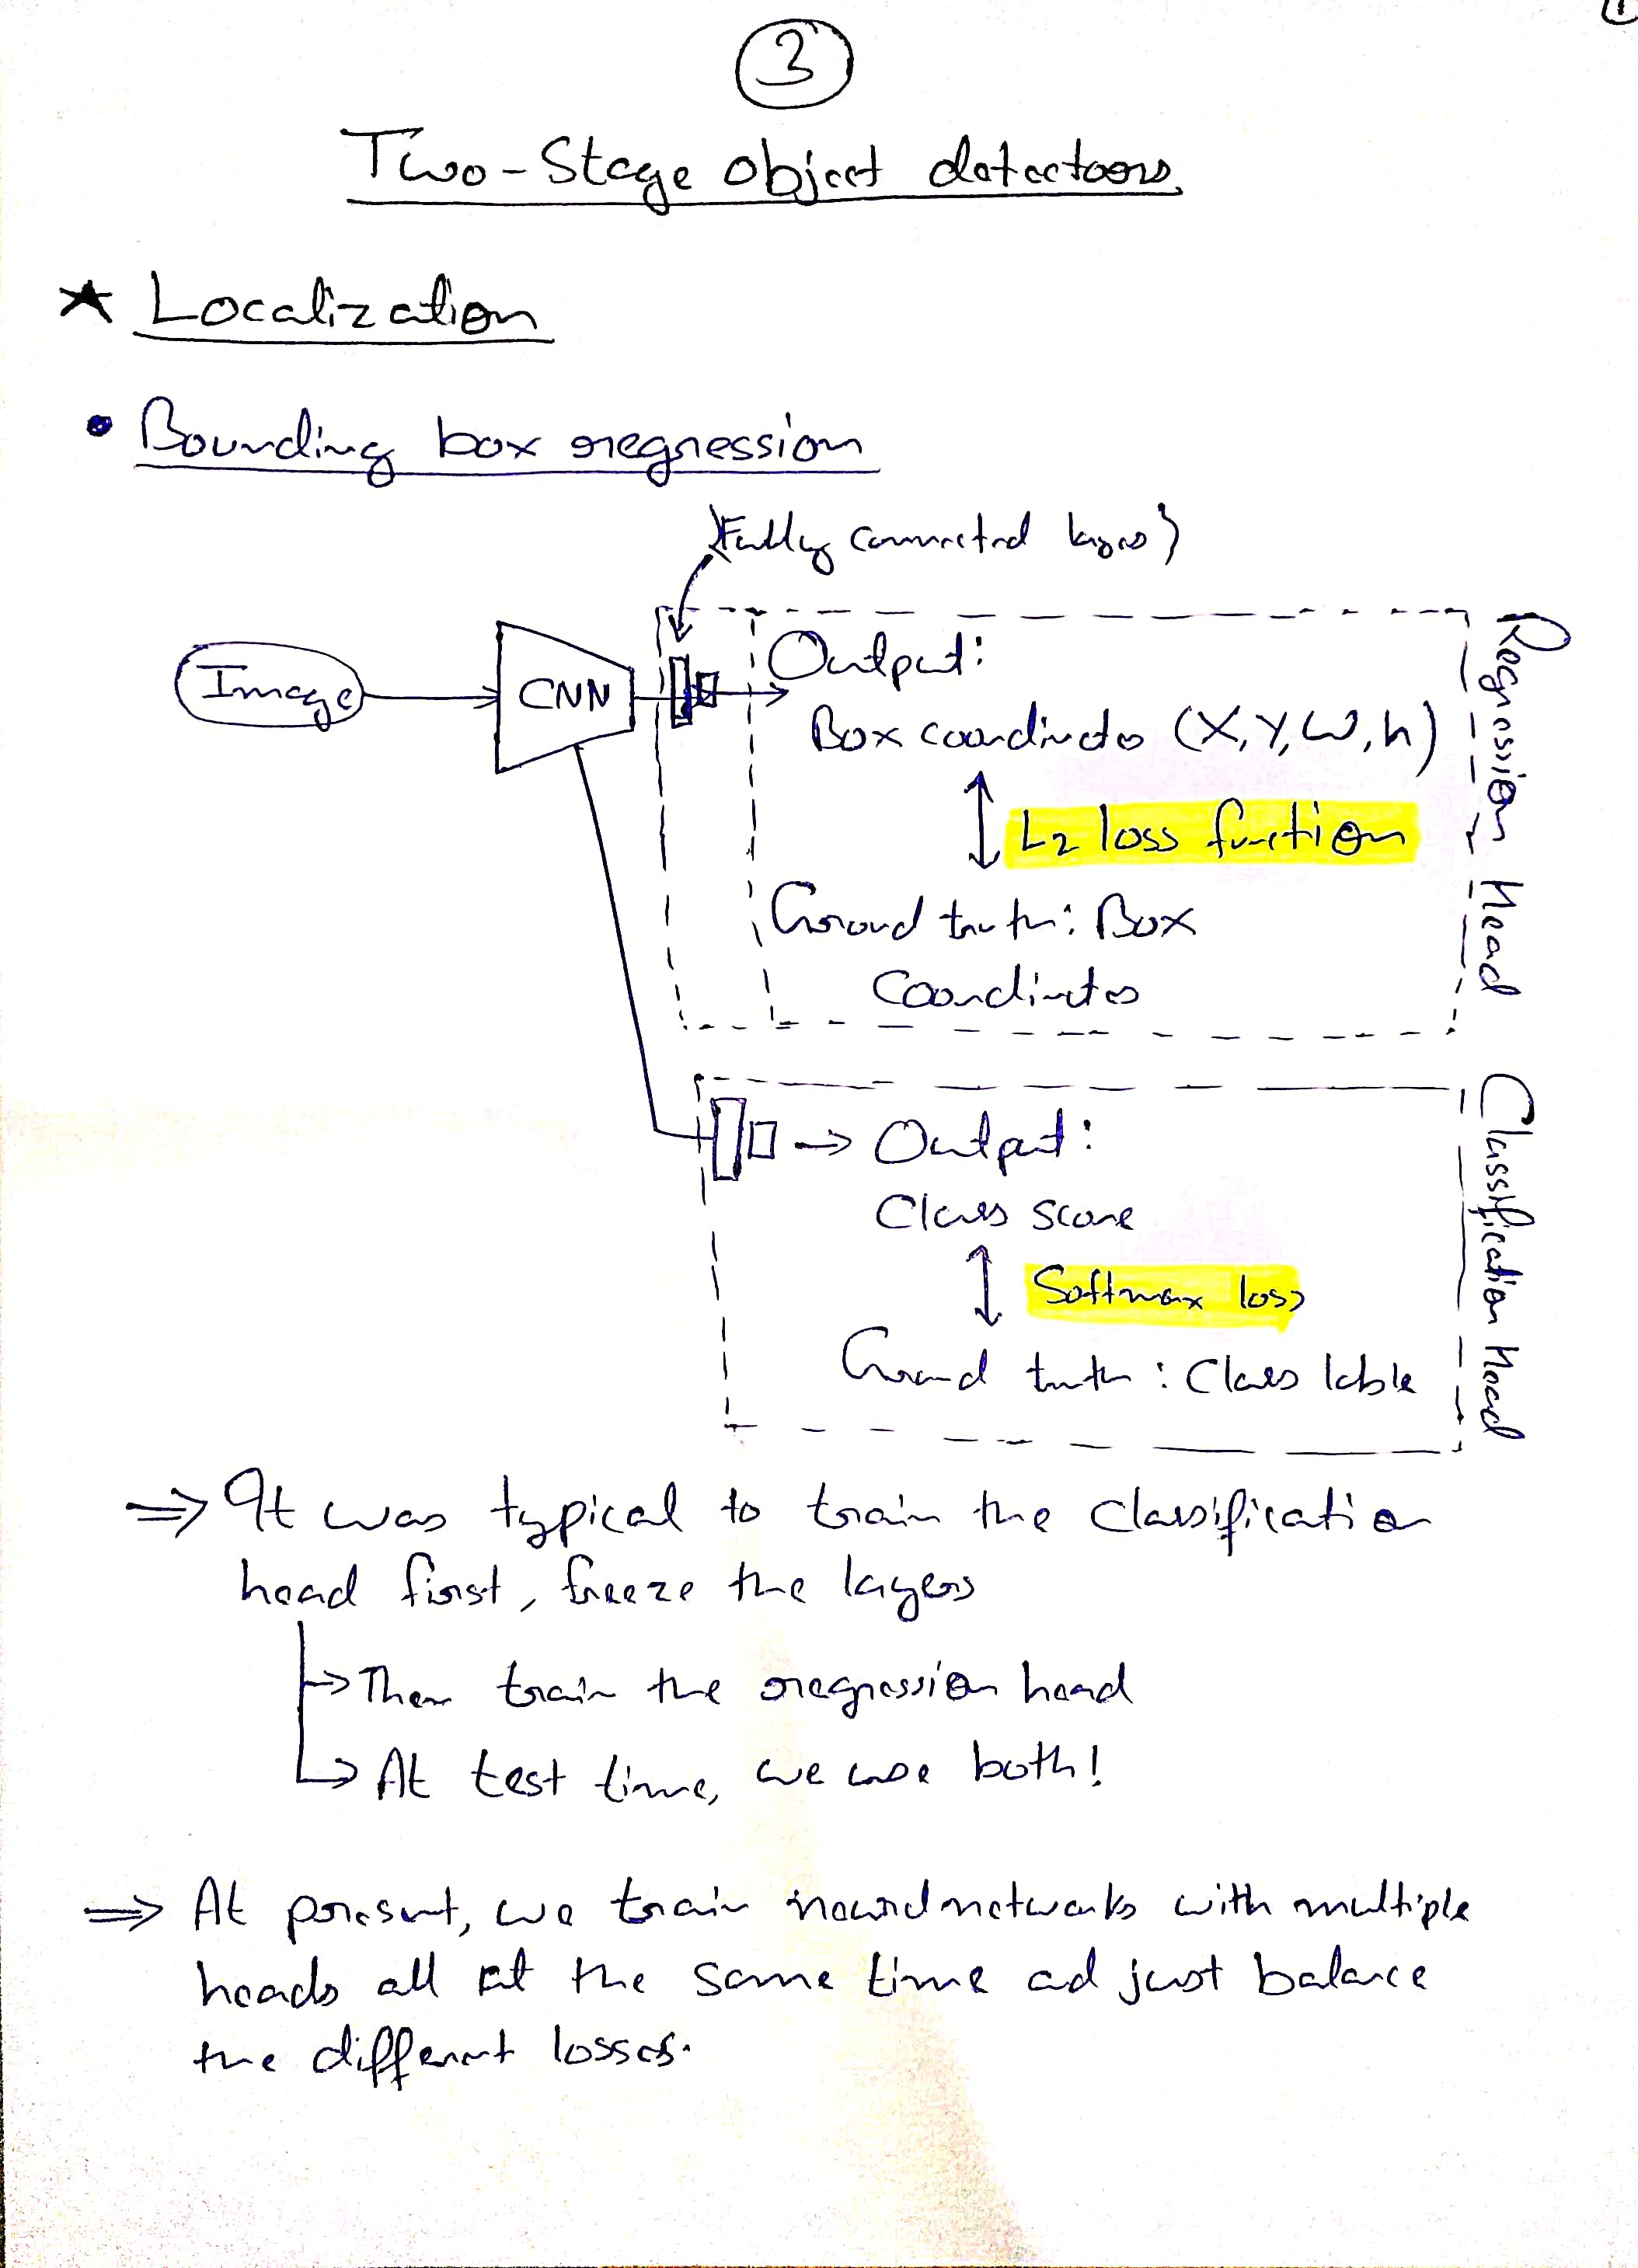 1
3
Two-Stage object detectors
★ Localization
• Bounding box regression
{Fully connected layers}
Image
CNN
Output:
Box coordinates (X, Y, W, h)
L2 loss function
Ground truth: Box
Coordinates
Regression Head
Output:
Class score
Softmax loss
Ground truth: Class lable
Classification Head
⇒ It was typical to train the classification
head first, freeze the layers
→ Then train the regression head
→ At test time, we use both!
⇒ At present, we train neural networks with multiple
heads all at the same time ad just balance
the different losses.